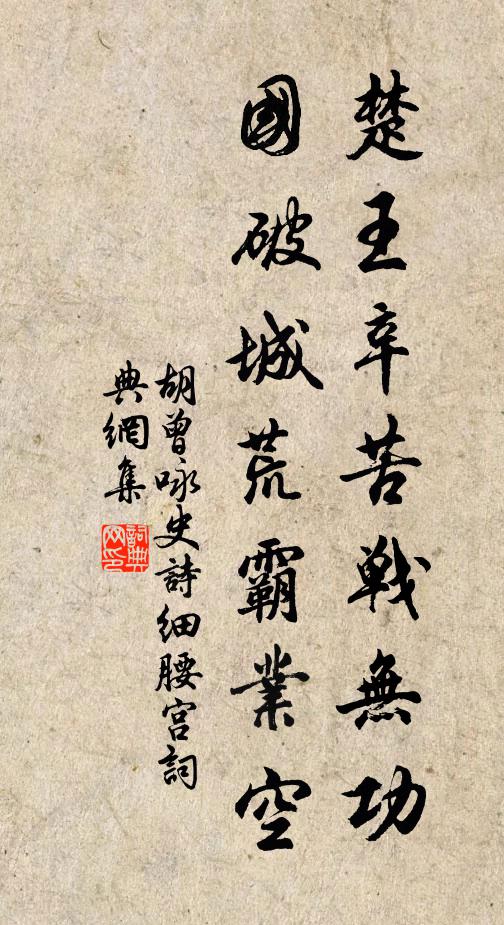 楚王辛苦戰無功
國破城荒霸業空
胡曾咏史詩細腰宫詞
典網集
詞典网印